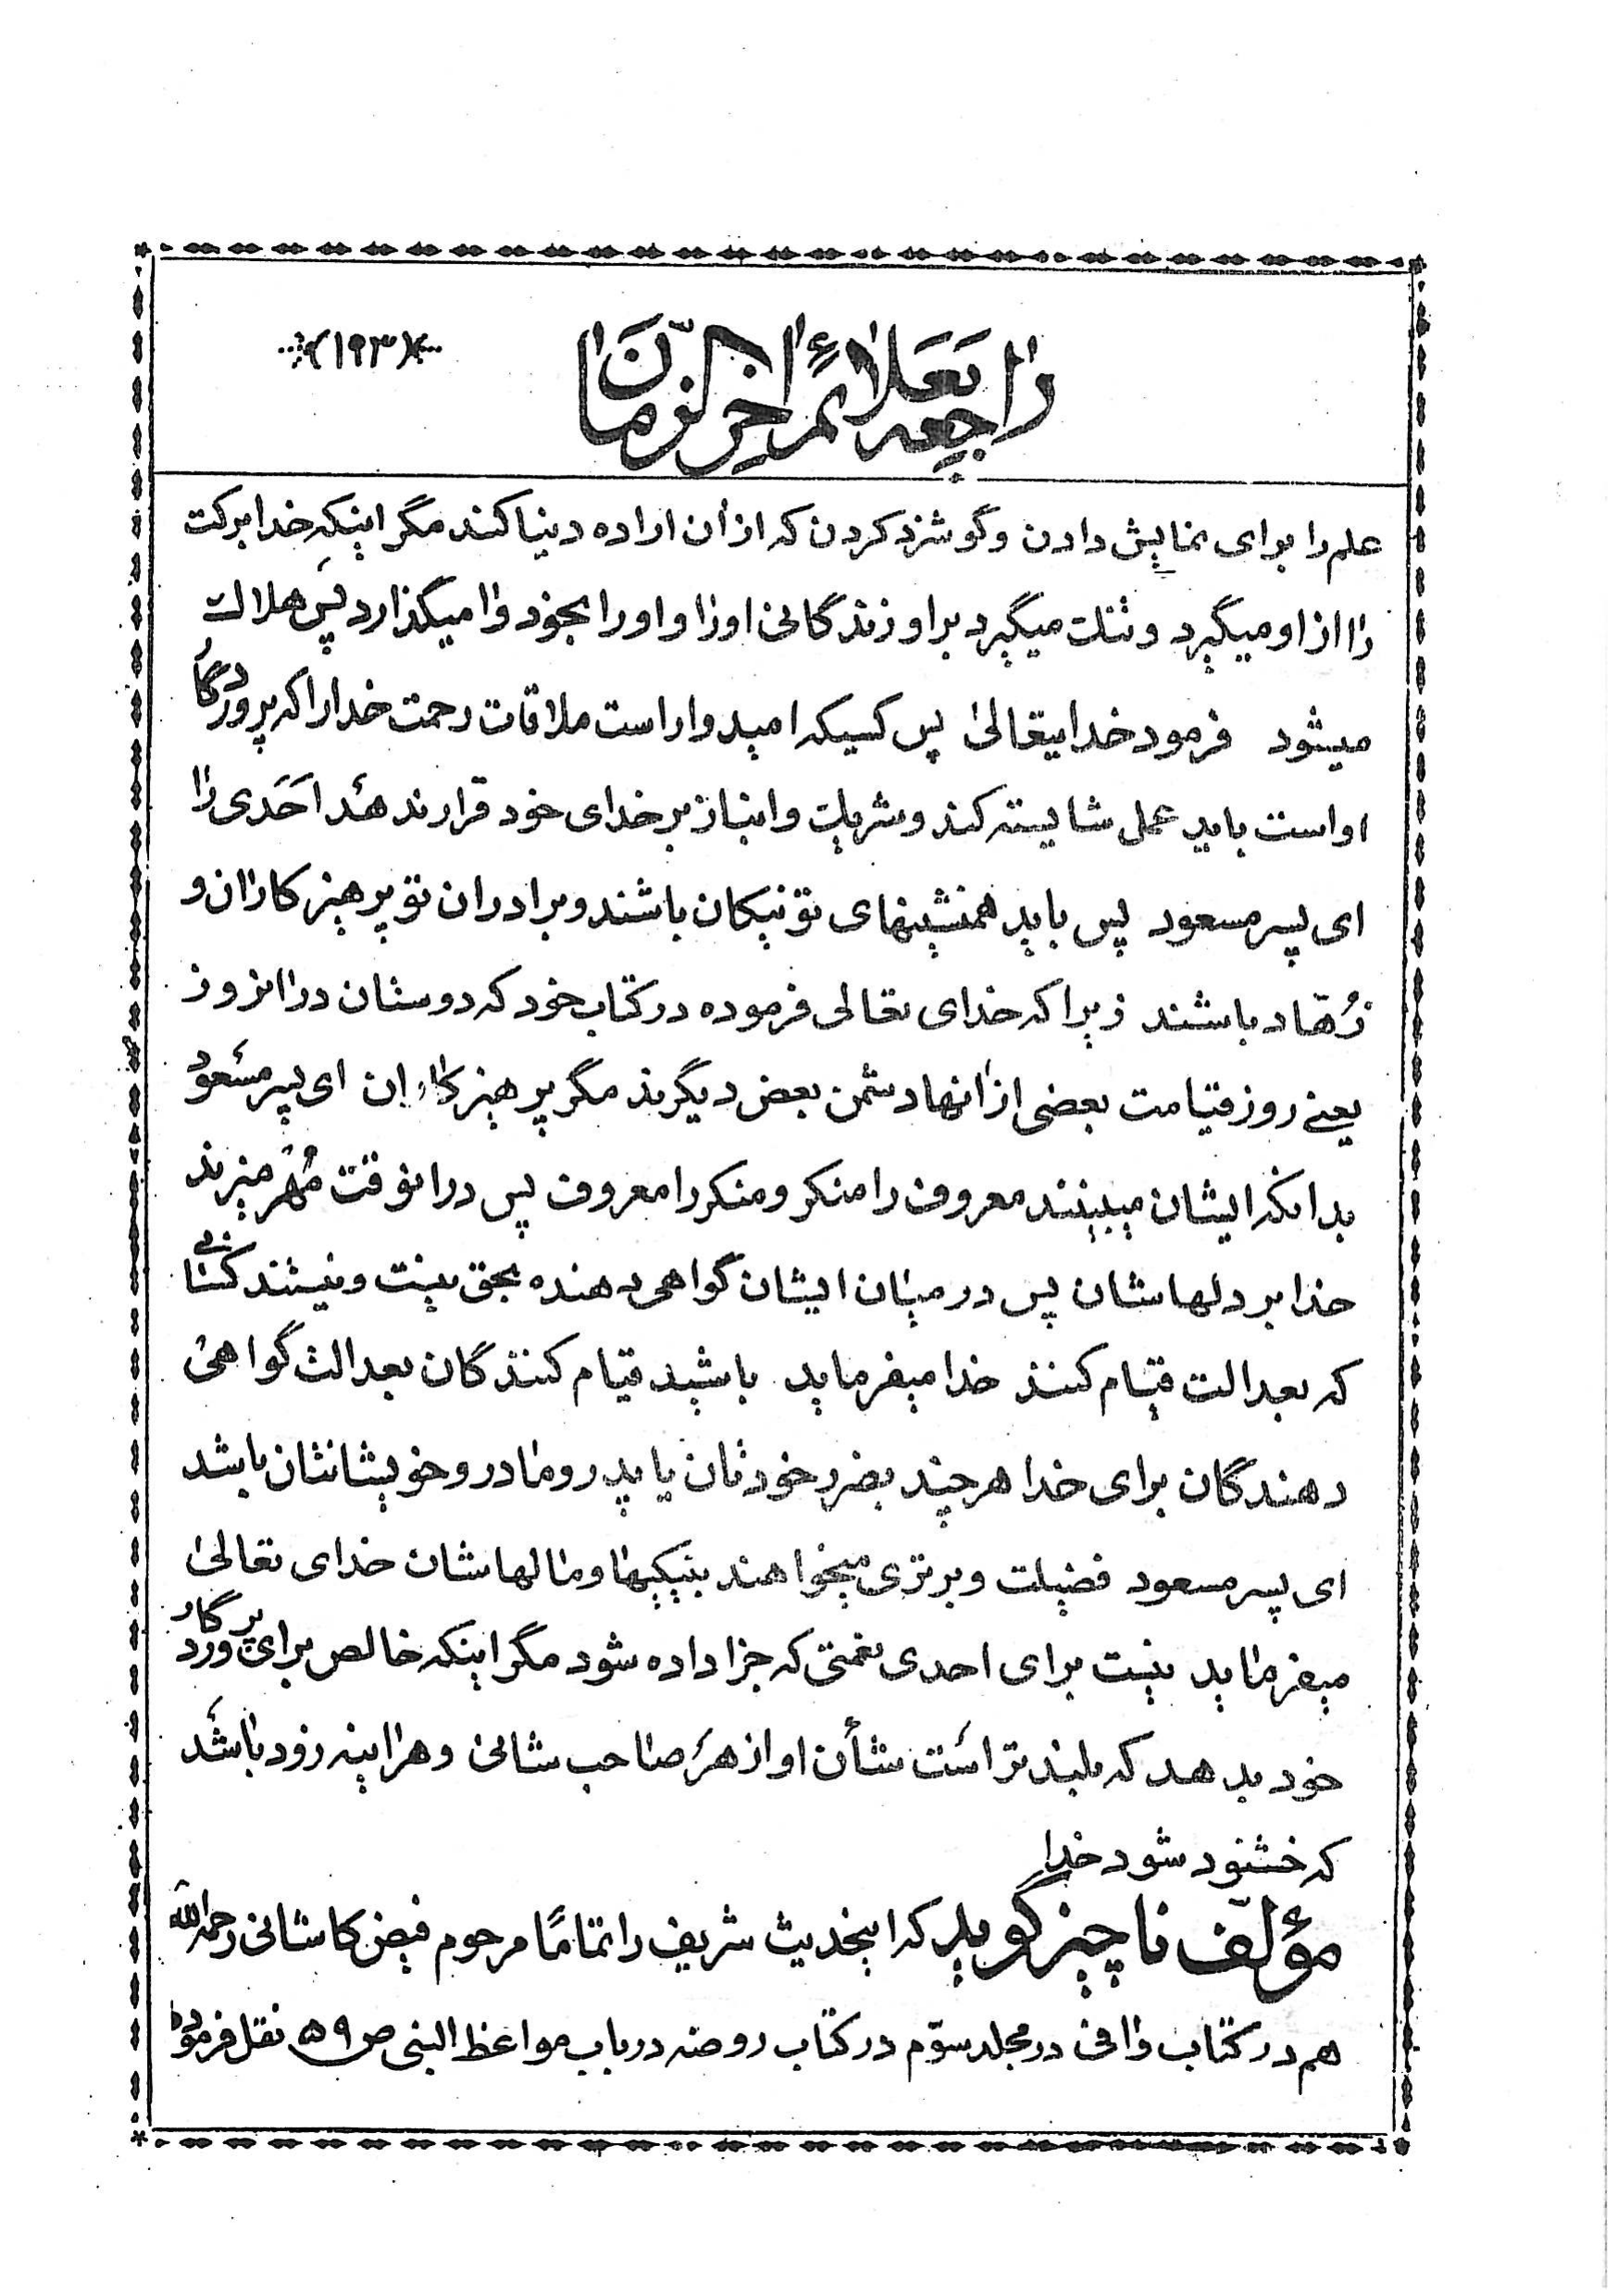 راجعه بعلائم آخرالزمان
(۱۹۳)
علم را برای نمایش دادن و گوشزد کردن که از آن اراده دنیا کند مگر اینکه خدا برکت
را از او میگیرد و تنگ میگیرد بر او زندگانی او را و او را بخود وا میگذارد پس هلاک
میشود فرمود خدایتعالی پس کسیکه امیدوار است ملاقات رحمت خدا را که پروردگار
او است باید عمل شایسته کند و شریک و انباز بر خدای خود قرار ندهد احدی را
ای پسر مسعود پس باید همنشینهای تو نیکان باشند و برادران تو پرهیزکاران و
زهّاد باشند زیرا که خدای تعالی فرموده در کتاب خود که دوستان در آنروز
یعنی روز قیامت بعضی از آنها دشمن بعض دیگرند مگر پرهیزکاران ای پسر مسعود
بدانکه ایشان میبینند معروف را منکر و منکر را معروف پس در آنوقت مُهر میزند
خدا بر دلهاشان پس در میان ایشان گواهی دهنده بحق نیست و نیستند کسانی
که بعدالت قیام کنند خدا میفرماید باشید قیام کنندگان بعدالت گواهی
دهندگان برای خدا هر چند بضرر خودتان یا پدر و مادر و خویشانتان باشد
ای پسر مسعود فضیلت و برتری میخواهند بنیکیها و مالهاشان خدای تعالی
میفرماید نیست برای احدی نعمتی که جزا داده شود مگر اینکه خالص برای پروردگار
خود بدهد که بلندتر است شأن او از هر صاحب شانی و هرآینه زود باشد
که خشنود شود خدا
مؤلّف ناچیز گوید که اینحدیث شریف را تمامًا مرحوم فیض کاشانی رحمه الله
هم در کتاب وافی در مجلد سوّم در کتاب روضه در باب مواعظ النبی ص ۵۹ نقل فرموده